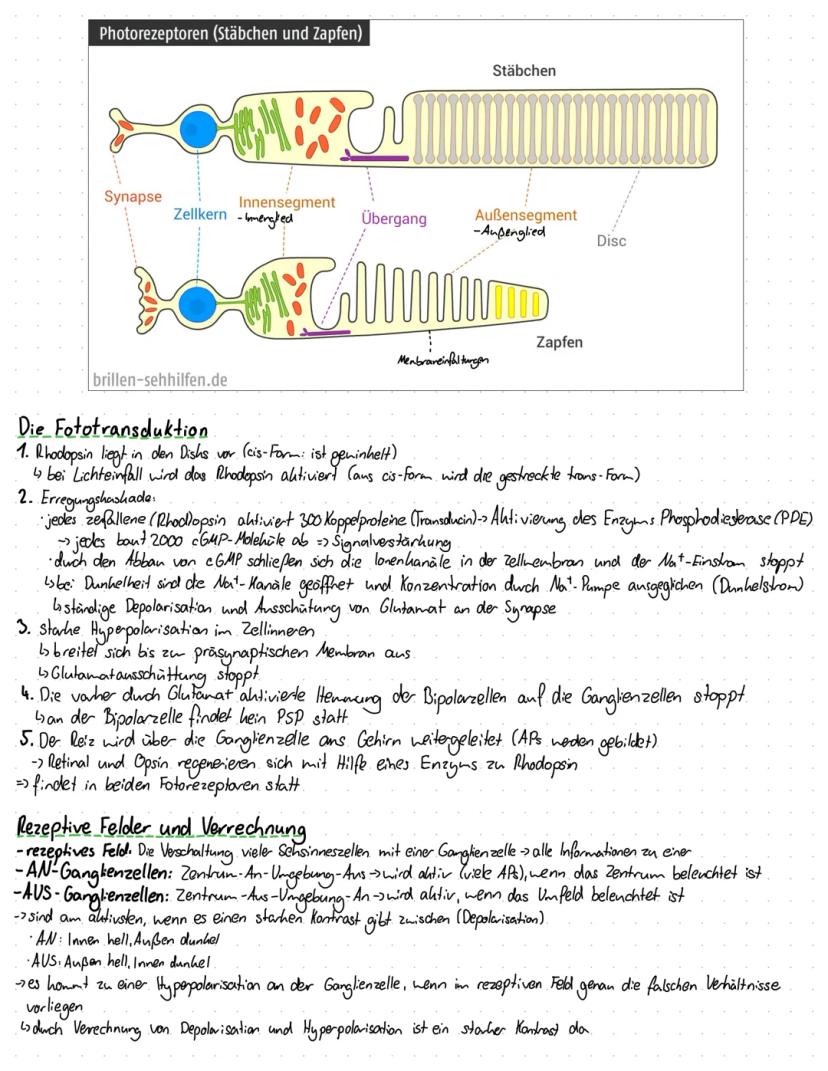 Photorezeptoren (Stäbchen und Zapfen)
Stäbchen
Synapse
Zellkern
Innensegment
- Innenglied
Übergang
Außensegment
- Außenglied
Disc
Zapfen
Membraneinfaltungen
brillen-sehhilfen.de
Die Fototransduktion
1. Rhodopsin liegt in den Disks vor (cis-Form: ist gewinkelt)
↳ bei Lichteinfall wird das Rhodopsin aktiviert (aus cis-Form wird die gestreckte trans-Form)
2. Erregungskaskade:
· jedes zerfallene (Rhod)opsin aktiviert 300 Koppelproteine (Transducin) -> Aktivierung des Enzyms Phosphodiesterase (PDE)
-> jedes baut 2000 cGMP-Moleküle ab => Signalverstärkung
· durch den Abbau von cGMP schließen sich die Ionenkanäle in der Zellmembran und der Na⁺-Einstrom stoppt
↳ bei Dunkelheit sind die Na⁺-Kanäle geöffnet und Konzentration durch Na⁺-Pumpe ausgeglichen (Dunkelstrom)
↳ ständige Depolarisation und Ausschüttung von Glutamat an der Synapse
3. starke Hyperpolarisation im Zellinneren
↳ breitet sich bis zur präsynaptischen Membran aus
↳ Glutamatausschüttung stoppt
4. Die vorher durch Glutamat aktivierte Hemmung der Bipolarzellen auf die Ganglienzellen stoppt
↳ an der Bipolarzelle findet kein PSP statt
5. Der Reiz wird über die Ganglienzelle ans Gehirn weitergeleitet (APs werden gebildet)
-> Retinal und Opsin regenerieren sich mit Hilfe eines Enzyms zu Rhodopsin
=> findet in beiden Fotorezeptoren statt
Rezeptive Felder und Verrechnung
- rezeptives Feld: Die Verschaltung vieler Sehsinneszellen mit einer Ganglienzelle -> alle Informationen zu einer
- AN-Ganglienzellen: Zentrum-An-Umgebung-Aus -> wird aktiv (viele APs), wenn das Zentrum beleuchtet ist
- AUS-Ganglienzellen: Zentrum-Aus-Umgebung-An -> wird aktiv, wenn das Umfeld beleuchtet ist
-> sind am aktivsten, wenn es einen starken Kontrast gibt zwischen (Depolarisation)
· AN: Innen hell, Außen dunkel
· AUS: Außen hell, Innen dunkel
-> es kommt zu einer Hyperpolarisation an der Ganglienzelle, wenn im rezeptiven Feld genau die falschen Verhältnisse
vorliegen
↳ durch Verrechnung von Depolarisation und Hyperpolarisation ist ein starker Kontrast da